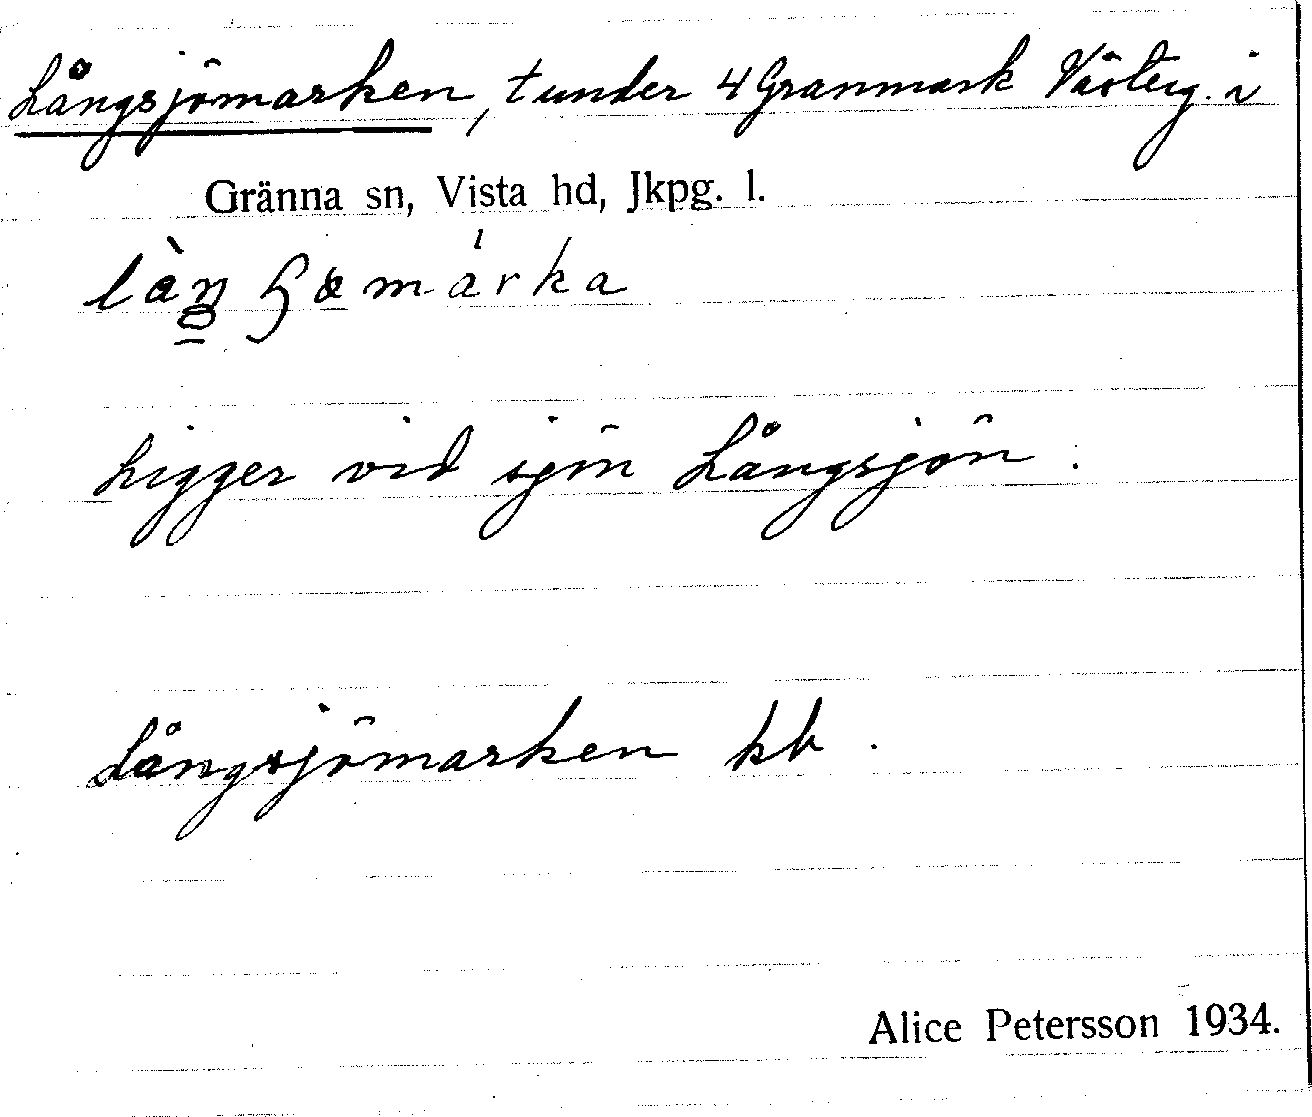 Långsjömarken, t under 4 Granmark Västerg. i
Gränna sn, Vista hd, Jkpg. l.
Ligger vid sjön Långsjön.
Långsjömarken kb.
Alice Petersson 1934.